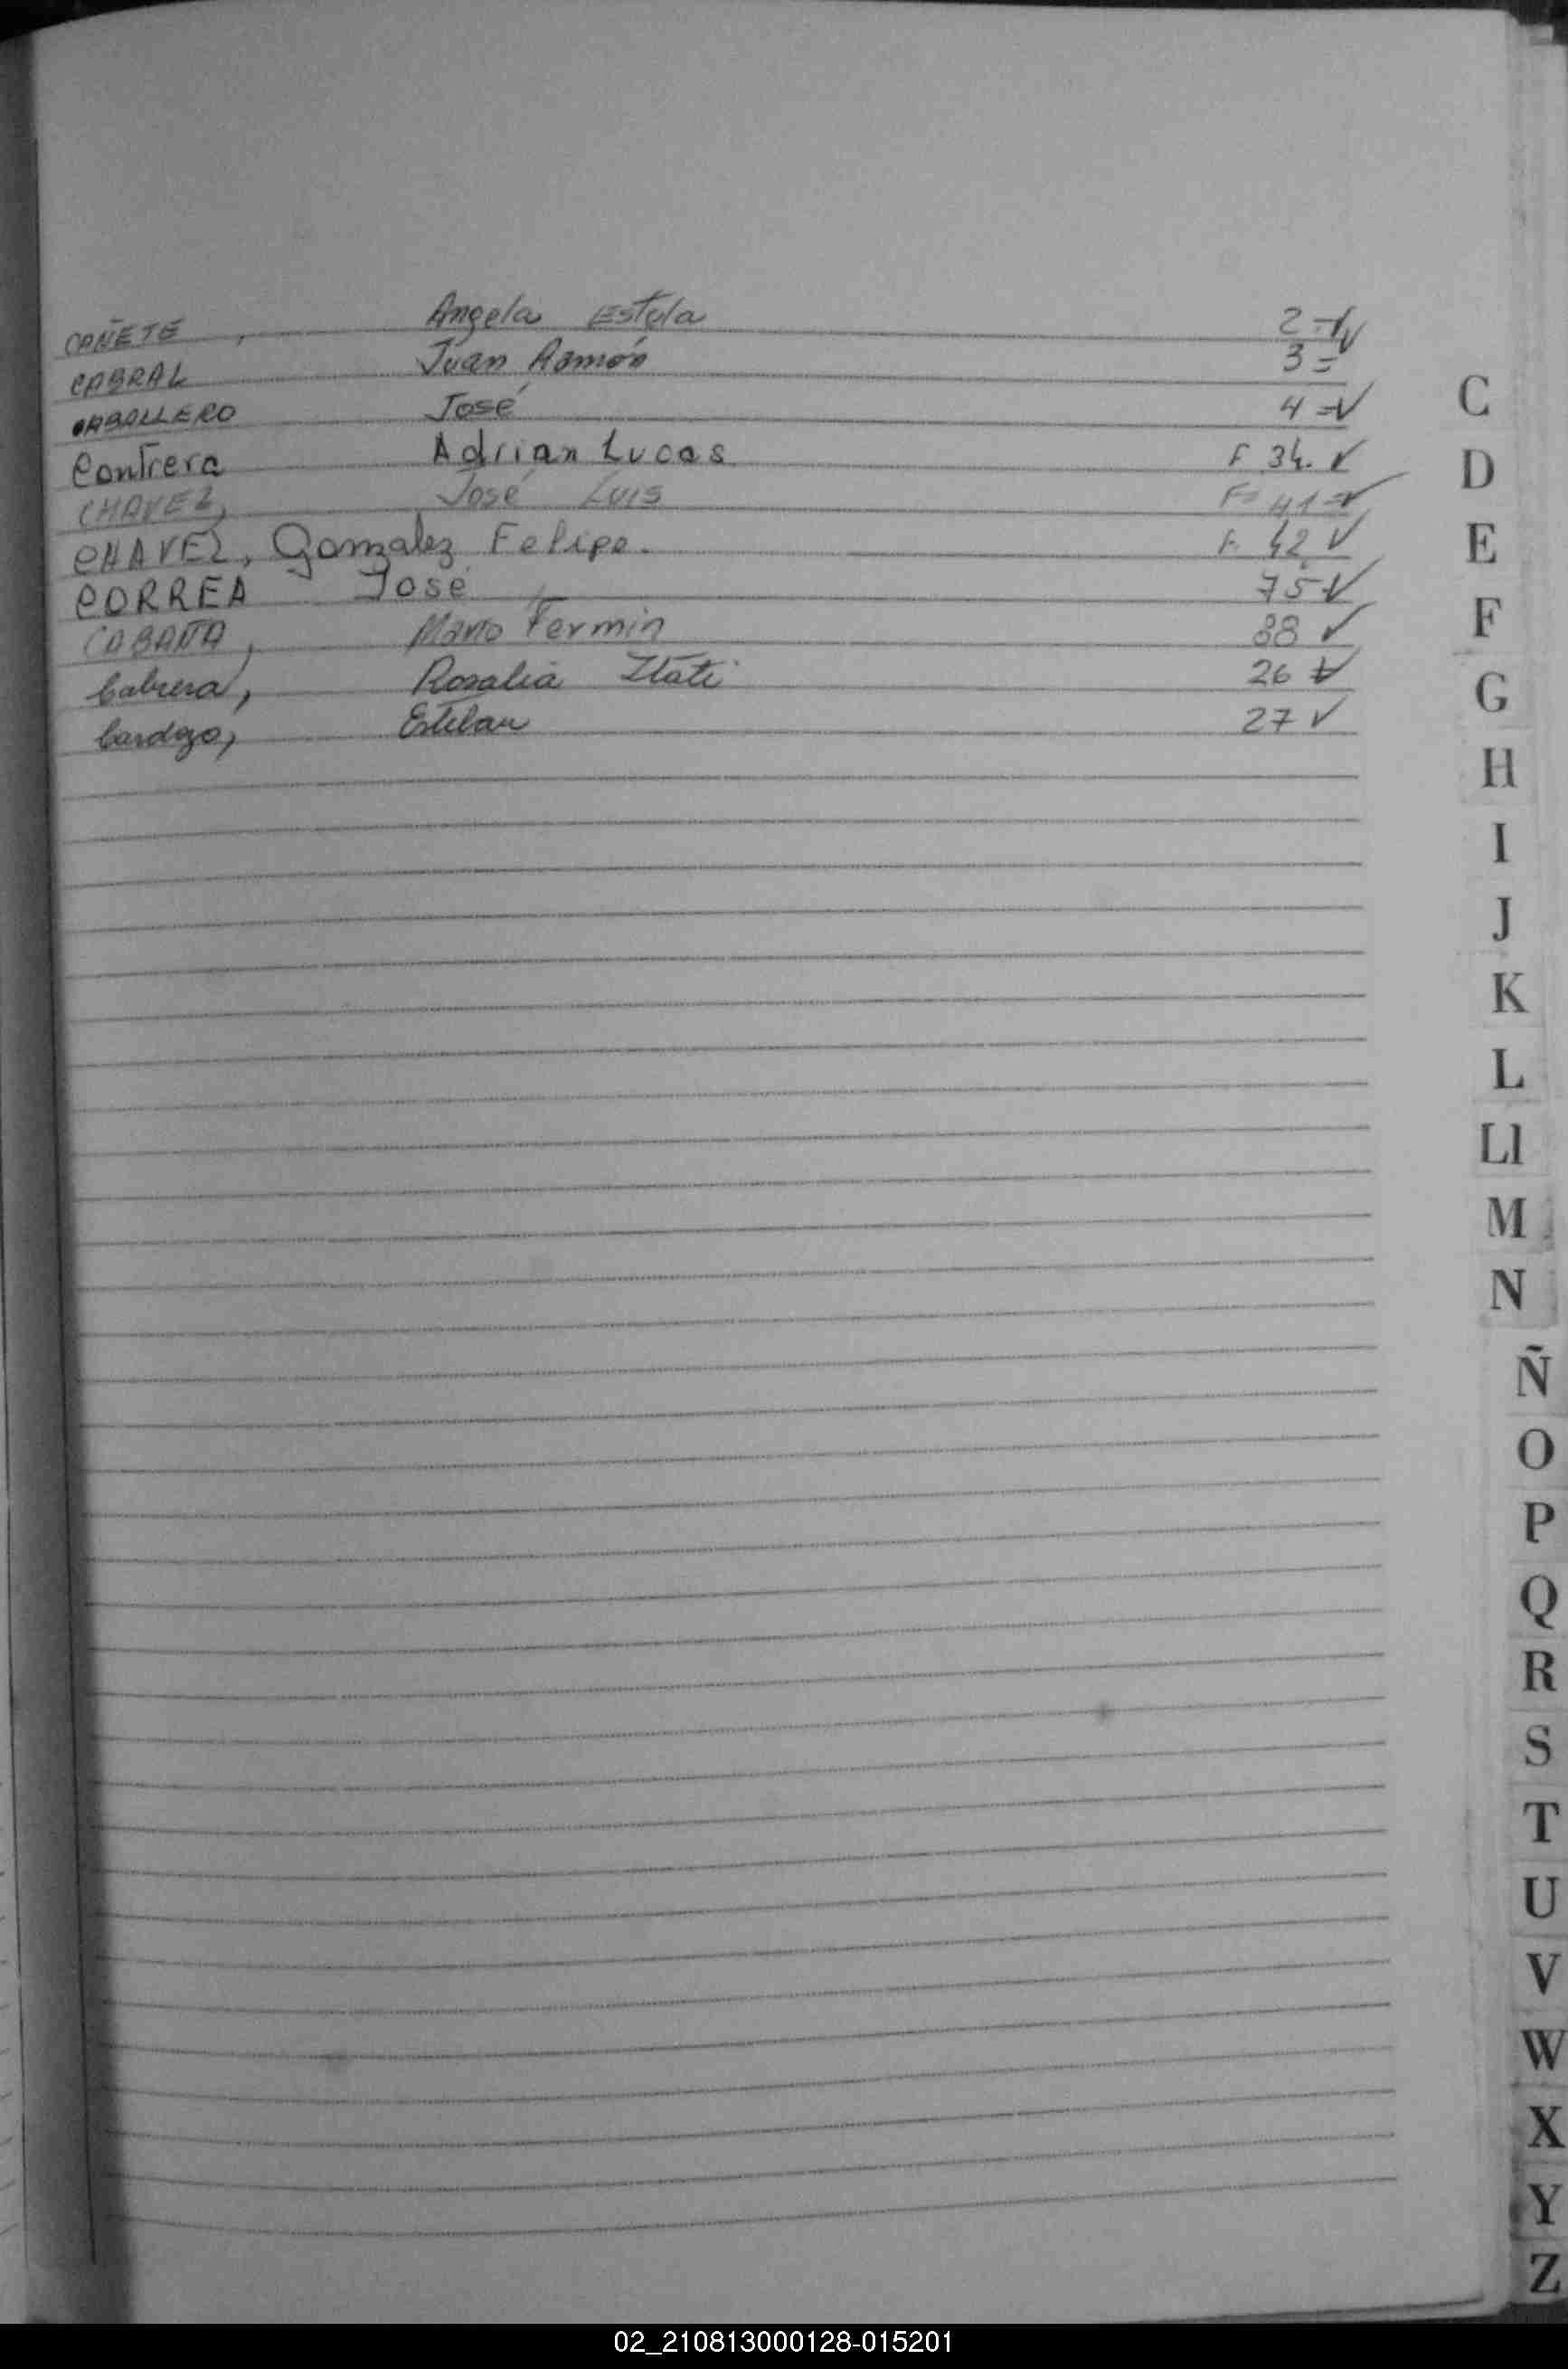 CAÑETE, Angela Estela 2=✓
CABRAL Juan Ramón 3=
CABALLERO José 4=✓
Contrera Adrian Lucas F 34. ✓
CHAVEZ, José Luis F= 41=✓
CHAVEZ, Gonzalez Felipe. F. 42 ✓
CORREA José 75✓
CABAÑA, Mario Fermin 88 ✓
Cabrera, Rosalia Itati 26 ✓
Cardozo, Esteban 27 ✓
C
D
E
F
G
H
I
J
K
L
Ll
M
N
Ñ
O
P
Q
R
S
T
U
V
W
X
Y
Z
02_210813000128-015201